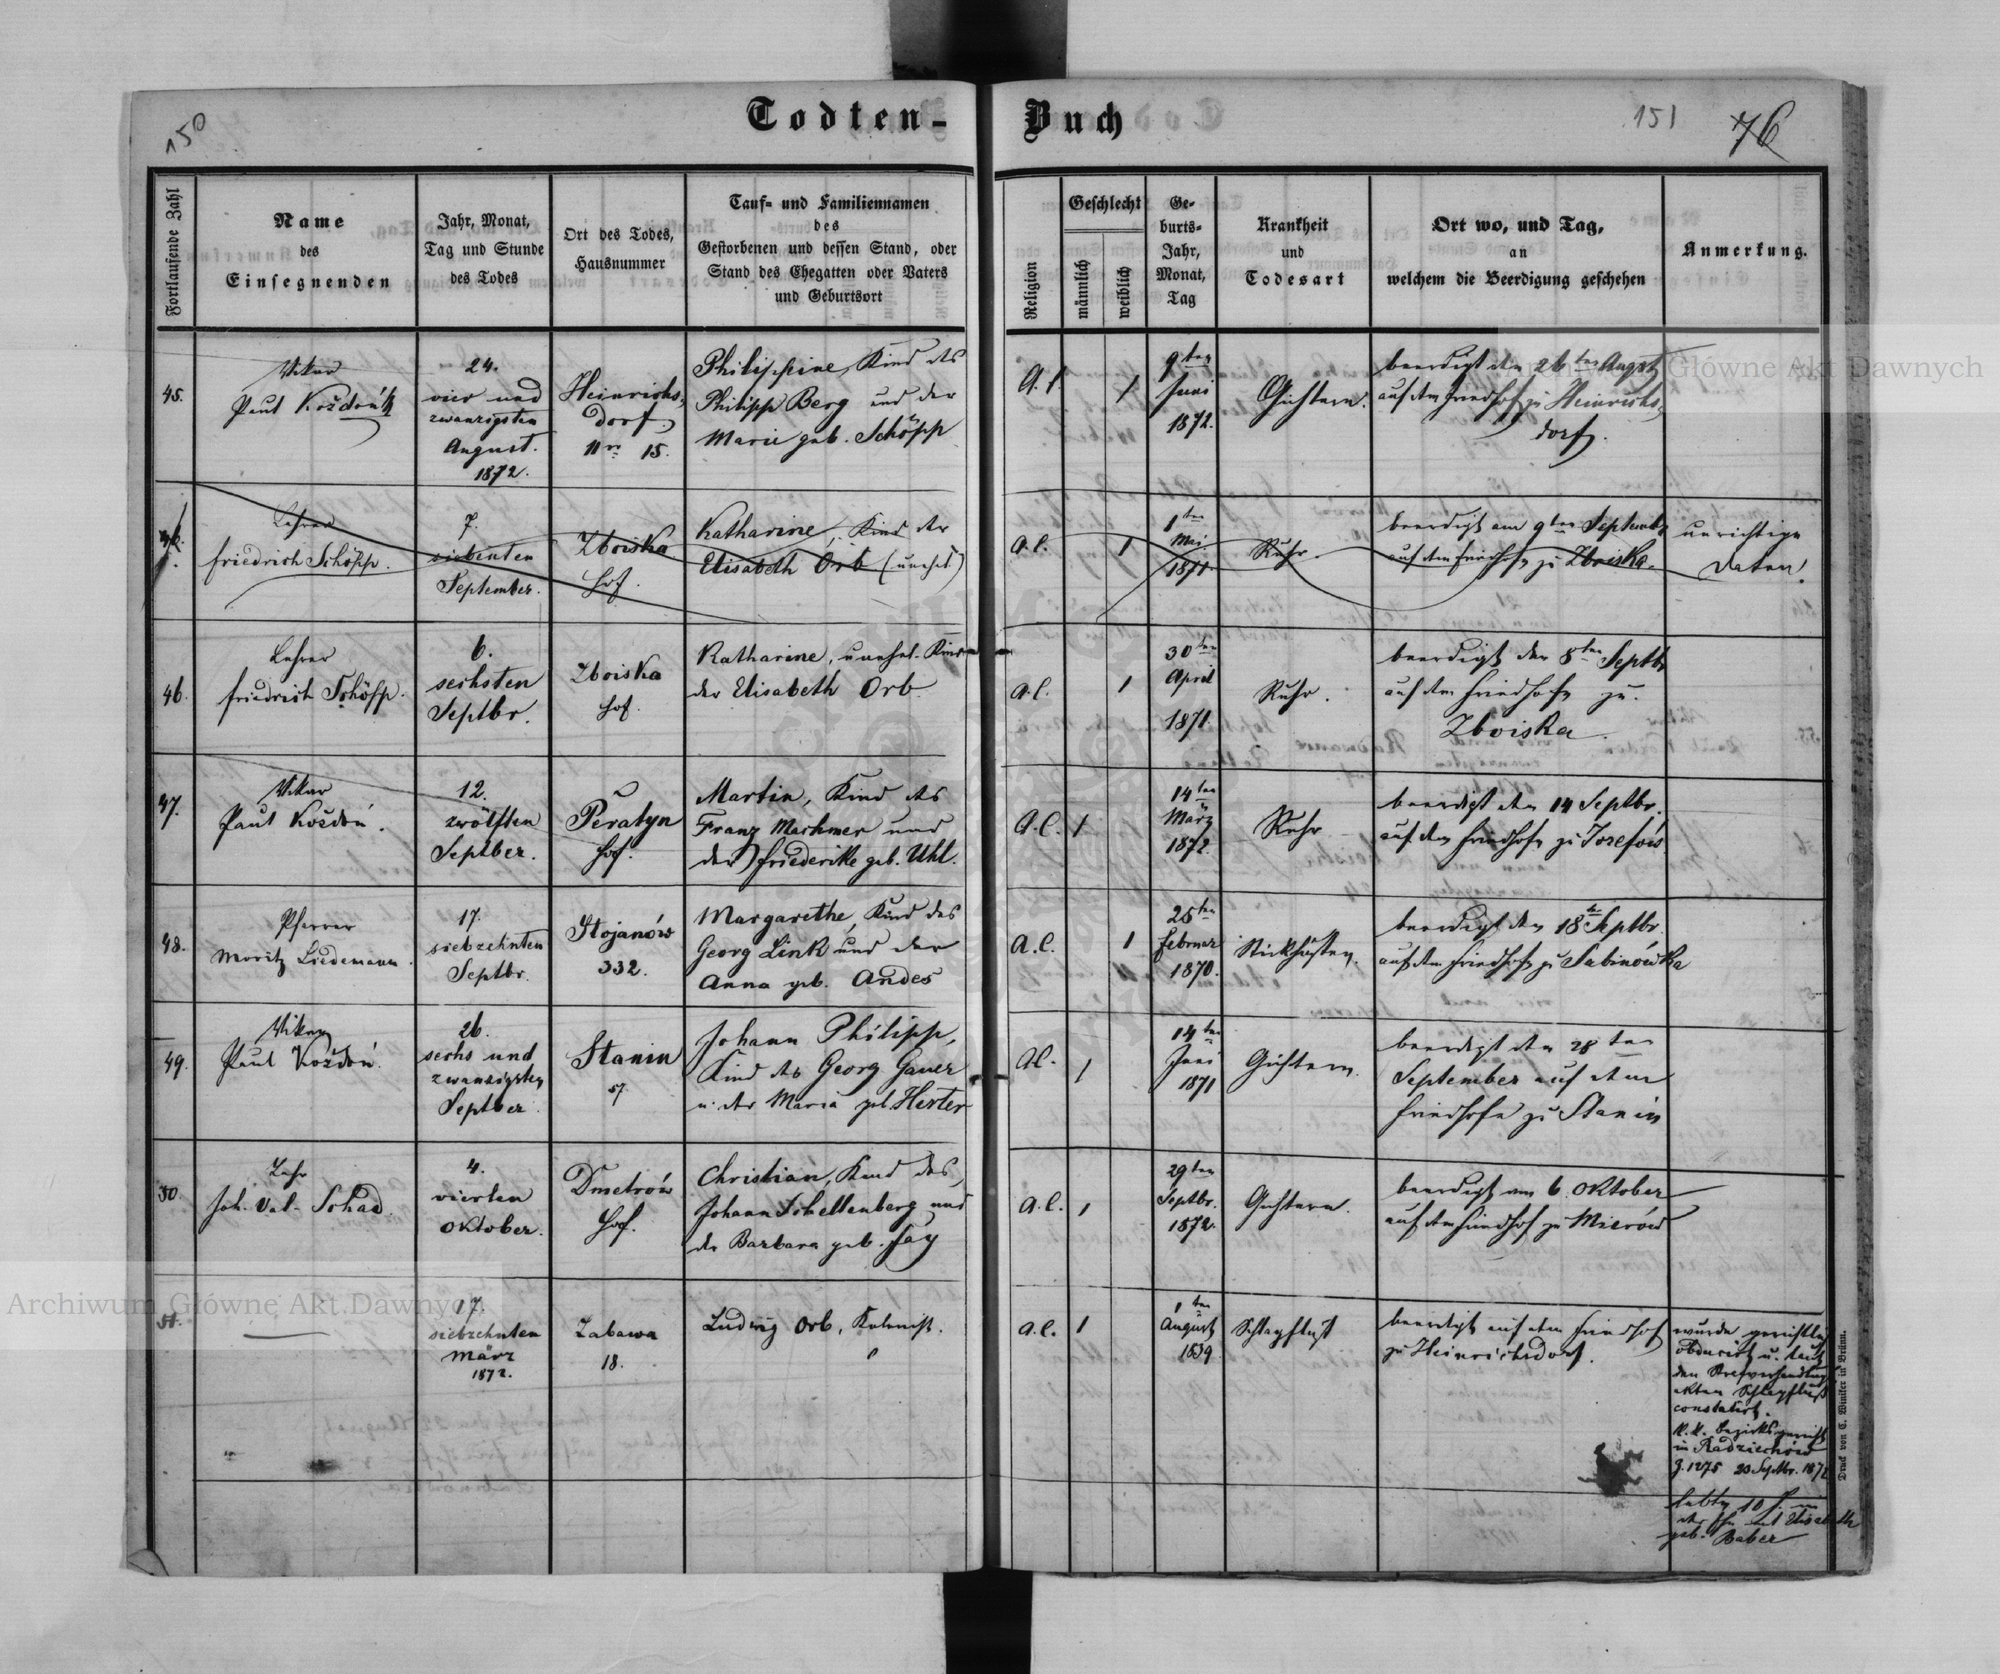 150
Todten-Buch
151 76
Fortlaufende Zahl
Name
des
Einsegnenden
Jahr, Monat,
Tag und Stunde
des Todes
Ort des Todes,
Hausnummer
Tauf- und Familiennamen
des
Gestorbenen und dessen Stand, oder
Stand des Ehegatten oder Vaters
und Geburtsort
Religion
Geschlecht
männlich
weiblich
Ge-
burts-
Jahr,
Monat,
Tag
Krankheit
und
Todesart
Ort wo, und Tag,
an
welchem die Beerdigung geschehen
Anmerkung.
45.
Vikar
Paul Koždoń
24.
vier und
zwanzigsten
August.
1872.
Heinrichs-
dorf.
Nro 15.
Philippine, Kind des
Philipp Berg und der
Marie geb. Schöpp
A. C.
1
9ten
Juni
1872.
Gichtern.
beerdigt den 26ten August
auf dem Friedhofe zu Heinrichs-
dorf.
Lehrer
Friedrich Schöpp.
7.
siebenten
September.
Zboiska
Hof.
Katharine, Kind der
Elisabeth Orb (unehel)
A. C.
1
1ten
Mai
1871.
Ruhr.
beerdigt am 9ten September
auf dem Friedhofe zu Zboiska.
unrichtige
Daten!
46.
Lehrer
Friedrich Schöpp.
6.
sechsten
Septbr.
Zboiska
Hof.
Katharine, unehel. Kind
der Elisabeth Orb
A. C.
1
30ten
April
1871.
Ruhr.
beerdigt den 8ten Septbr
auf dem Friedhofe zu
Zboiska.
47.
Vikar
Paul Koždoń.
12.
zwölften
Septber.
Peratyn
Hof.
Martin, Kind des
Franz Machmer und
der Friederike geb. Uhl.
A. C.
1
14ten
März
1872.
Ruhr
beerdigt den 14 Septbr.
auf dem Friedhofe zu Josefów
48.
Pfarrer
Moritz Liedemann.
17.
siebzehnten
Septbr.
Stojanów
332.
Margarethe, Kind des
Georg Link und der
Anna geb. Andes
A. C.
1
25ten
Februar
1870.
Stickhusten.
beerdigt den 18ten Septbr.
auf dem Friedhofe zu Sabinówka
49.
Vikar
Paul Koždoń.
26.
sechs und
zwanzigsten
Septber.
Stanin
57
Johann Philipp,
Kind des Georg Gauer
u. der Maria geb. Herter
A. C.
1
14ten
Juni
1871
Gichtern.
beerdigt den 28ten
September auf dem
Friedhofe zu Stanin
50.
Lehr
Joh. Val. Schad
4.
vierten
Oktober.
Dmetrów
Hof.
Christian, Kind des
Johann Schellenberg und
der Barbara geb. Fay
A. C.
1
29ten
Septbr.
1872.
Gichtern.
beerdigt am 6. Oktober
auf dem Friedhof zu Mierów
51.
17.
siebzehnten
März
1872.
Zabawa
18.
Ludwig Orb, Kolonist.
A. C.
1
1ten
August
1839
Schlagfluß
beerdigt auf dem Friedhof
zu Heinrichsdorf.
wurde gerichtlich
obducirt u. laut
den Strafverhandlungs-
akten Schlagfluß
constatirt.
K. K. Bezirksgericht
in Radziechów
Z. 1275 20 Septbr. 1872
lebte 10 J. in
der Ehe mit Elisabeth
geb. Baber
Druck von C. Winiker in Brünn.
Archiwum Główne Akt Dawnych
Główne Akt Dawnych